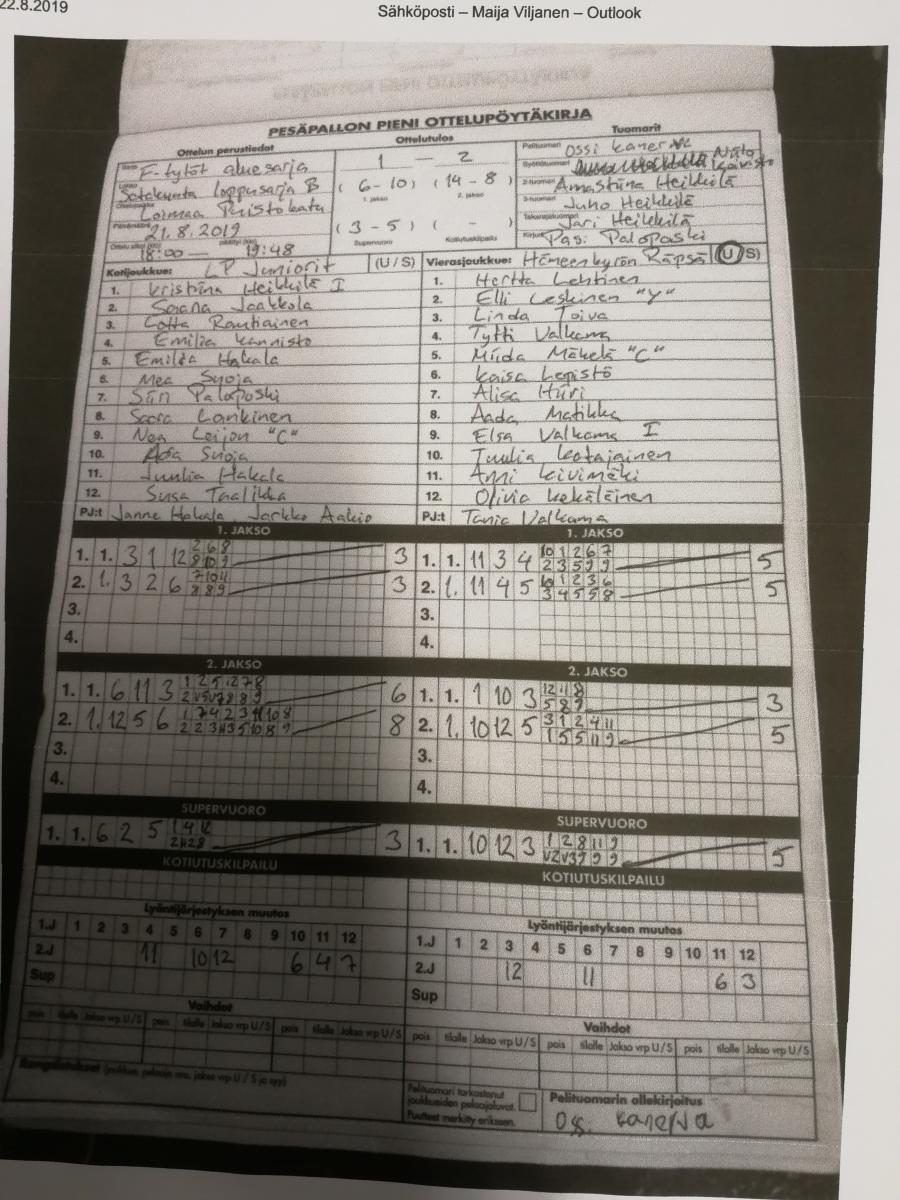 22.8.2019
Sähköposti – Maija Viljanen – Outlook
PESÄPALLON PIENI OTTELUPÖYTÄKIRJA
Ottelun perustiedot Ottelutulos Tuomarit
Sarja F-tytöt aluesarja
Lohko Satakunta loppusarja B
Ottelupaikka Loimaa Puistokatu
Päivämäärä 21.8.2019
Ottelu alkoi (klo) 18:00 — päättyi (klo) 19:48
1 — 2
(6-10) (14-8)
1. jakso 2. jakso
(3-5) ( - )
Supervuoro Kotiutuskilpailu
Pelituomari Ossi Kanerva
Syöttötuomari Niilo Koivisto
2-tuomari Annastiina Heikkilä
3-tuomari Juho Heikkilä
Takarajatuomari Jari Heikkilä
Kirjuri Pasi Paloposki
Kotijoukkue: LP Juniorit (U / S)
1. Kristiina Heikkilä I
2. Saana Jaakkola
3. Lotta Rautiainen
4. Emilia Kannisto
5. Emilia Hakala
6. Mea Suoja
7. Siiri Paloposki
8. Saara Lankinen
9. Nea Leijon "C"
10. Ada Suoja
11. Juulia Hakala
12. Susa Taalikka
PJ:t Janne Hakala Jarkko Aakio
Vierasjoukkue: Hämeenkyrön Räpsä (U / S)
1. Hertta Lehtinen
2. Elli Leskinen "Y"
3. Linda Toiva
4. Tytti Valkama
5. Miida Mäkelä "C"
6. Kaisa Lepistö
7. Alisa Huri
8. Aada Matikka
9. Elsa Valkama I
10. Tuulia Katajainen
11. Anni Kivimäki
12. Olivia Kekäläinen
PJ:t Tania Valkama
1. JAKSO 1. JAKSO
1. 1. 3 1 12 2 6 8 3 1. 1. 11 3 4 10 1 2 6 7 5
8 10 9 2 3 5 9 9
2. 1. 3 2 6 7 10 4 3 2. 1. 11 4 5 10 1 2 3 6 5
8 8 9 3 4 5 5 8
3. 3.
4. 4.
2. JAKSO 2. JAKSO
1. 1. 6 11 3 1 2 5 12 7 8 6 1. 1. 1 10 3 12 11 8 3
8 8 9 5 8 9
2. 1. 12 5 6 1 7 4 2 3 11 10 8 8 2. 1. 10 12 5 3 1 2 4 11 5
2 2 3 5 10 8 9 1 5 5 11 9
3. 3.
4. 4.
SUPERVUORO SUPERVUORO
1. 1. 6 2 5 1 4 12 3 1. 1. 10 12 3 1 2 8 11 9 5
V2 V3 9 9 9
KOTIUTUSKILPAILU KOTIUTUSKILPAILU
Lyöntijärjestyksen muutos Lyöntijärjestyksen muutos
1.J 1 2 3 4 5 6 7 8 9 10 11 12 1.J 1 2 3 4 5 6 7 8 9 10 11 12
2.J 11 10 12 6 4 7 2.J 12 11 6 3
Sup Sup
Vaihdot Vaihdot
pois tilalle Jakso vrp U/S pois tilalle Jakso vrp U/S pois tilalle Jakso vrp U/S
pois tilalle Jakso vrp U/S pois tilalle Jakso vrp U/S pois tilalle Jakso vrp U/S
Rangaistukset (joukkue, pelaaja nro, jakso vrp U / S ja syy)
Pelituomari tarkastanut
joukkueiden pelaajaluvat.
Puutteet merkitty erikseen.
Pelituomarin allekirjoitus
Ossi Kanerva